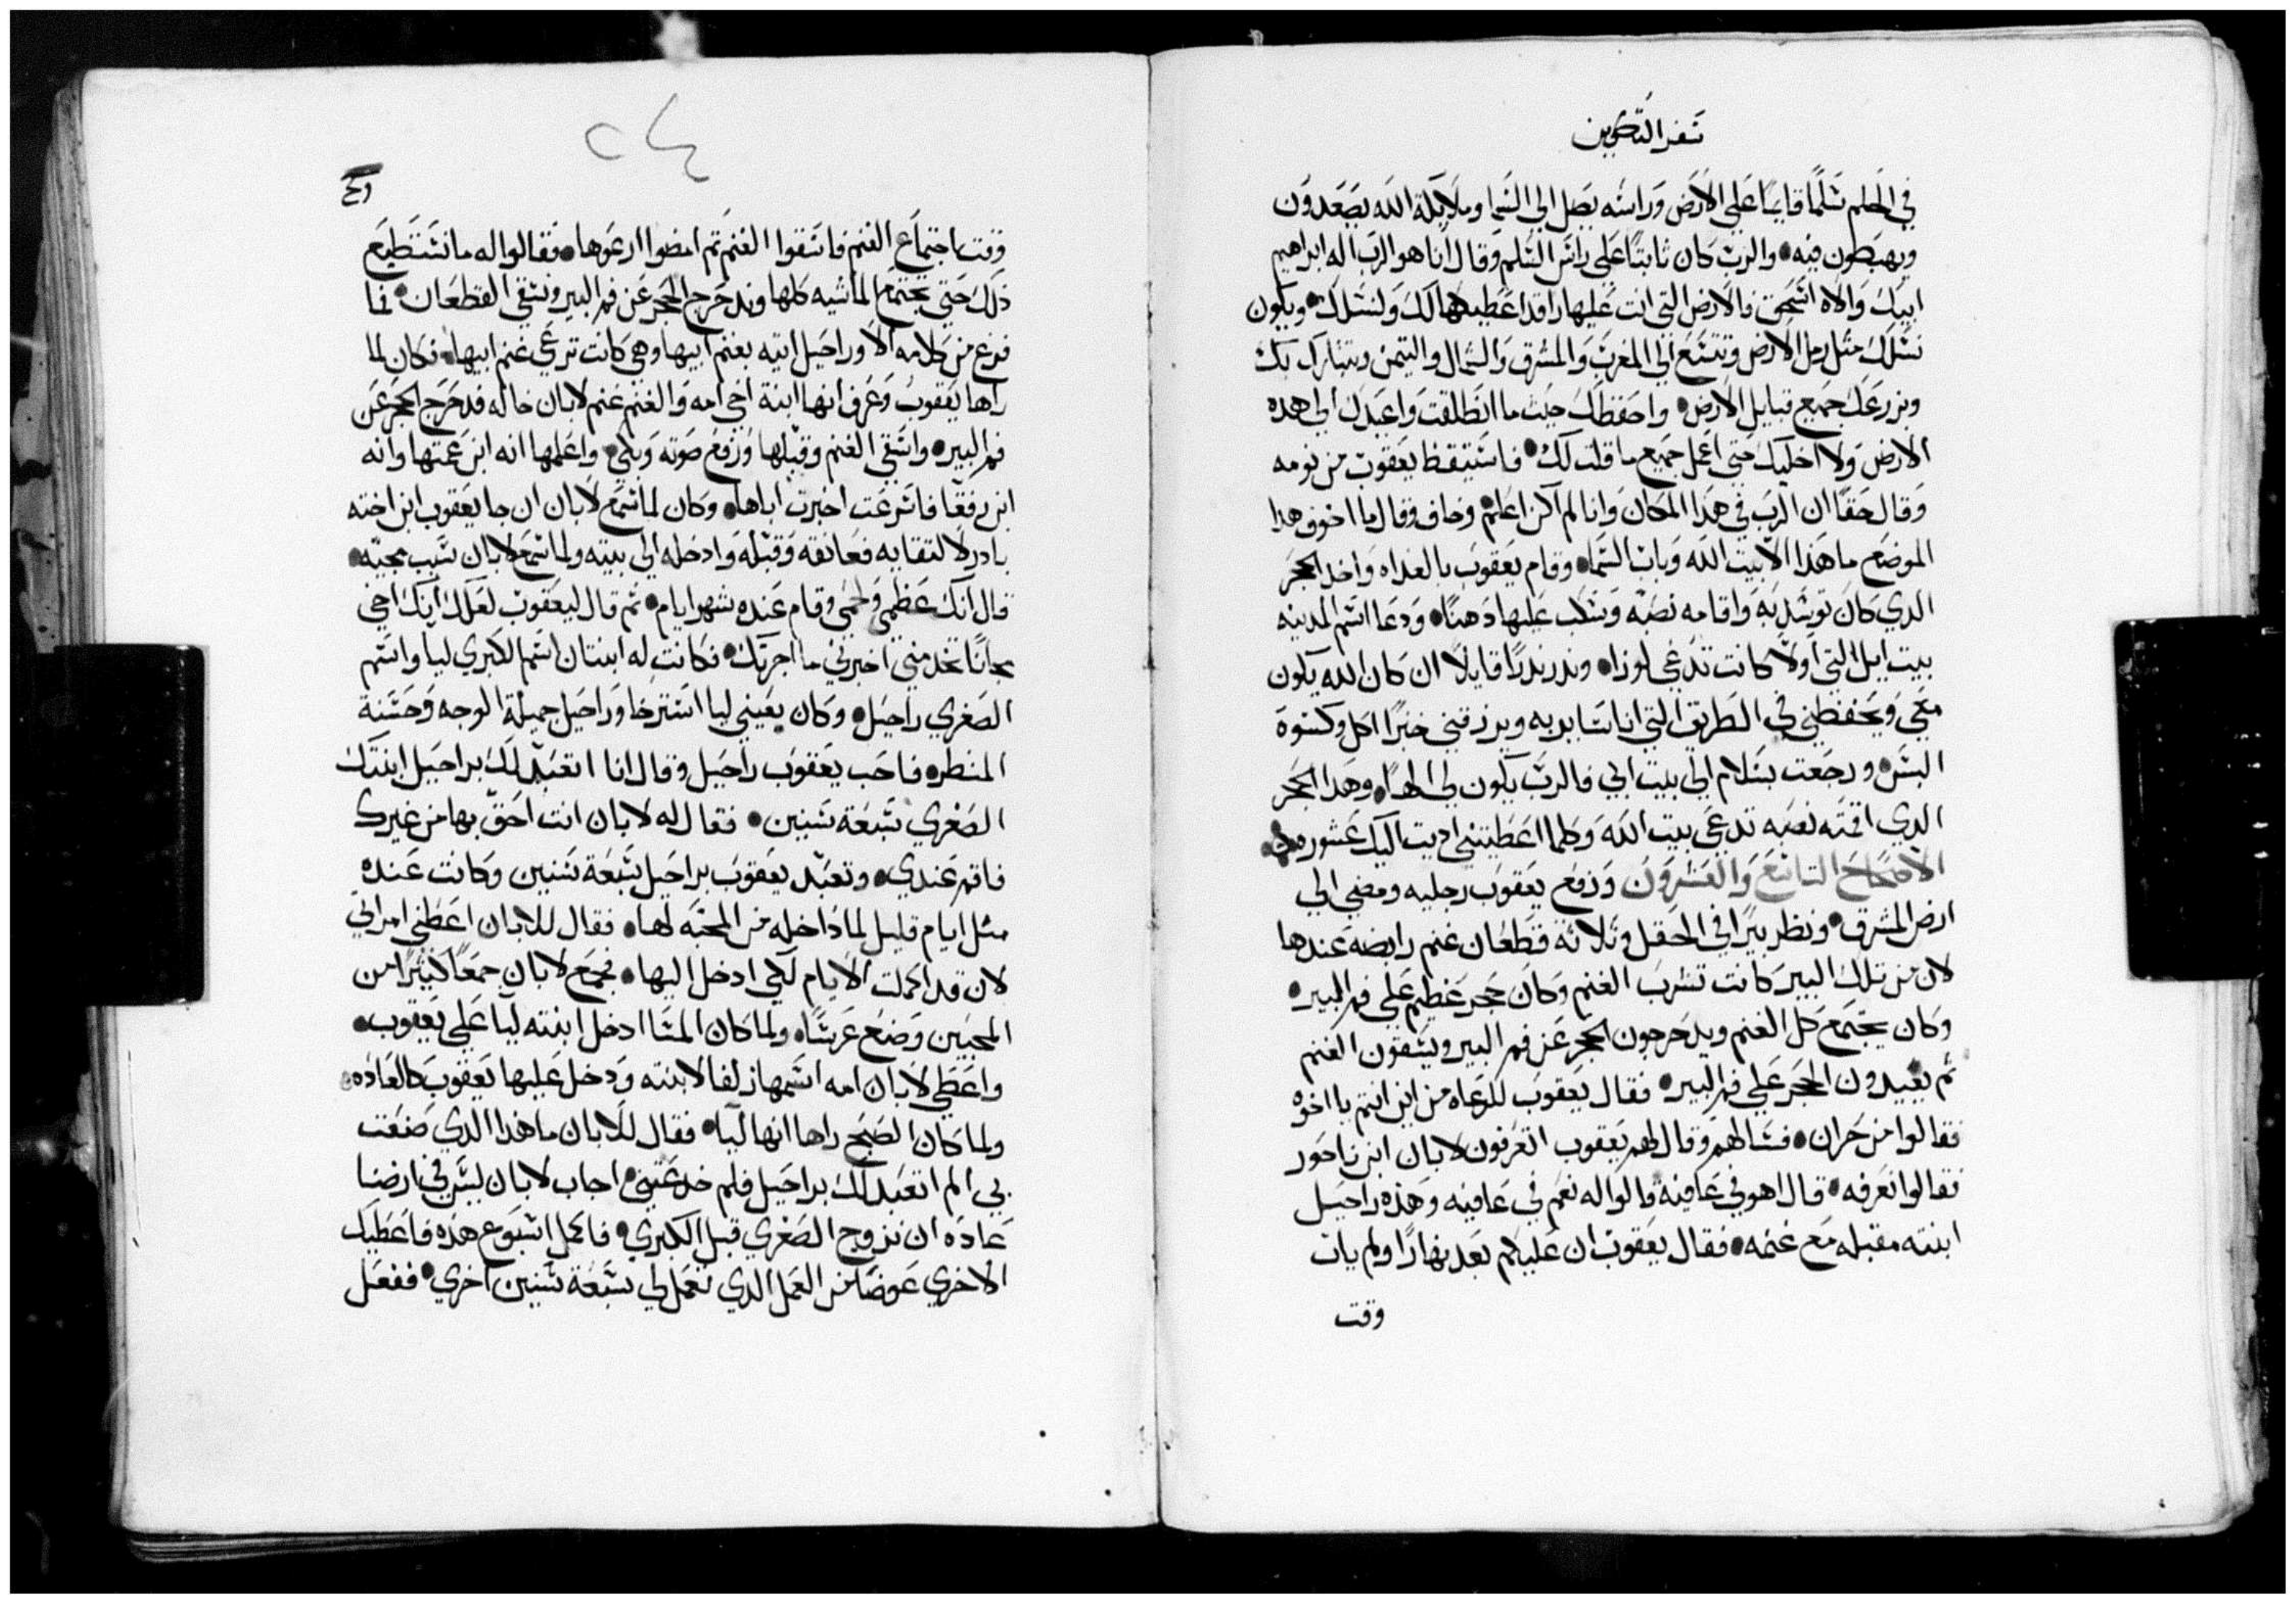 سفر التكوين
في الحلم سلمًا قايمًا على الارض وراسه يصل الي السما وملايكة الله يصعدون
ويهبطون فيه والرب كان ثابتًا علي راس السلم وقال انا هو الرب اله ابراهيم
ابيك والاه اسحق فالارض التي انت عليها راقدا اعطيها لك ولنسلك ويكون
نسلك مثل رمل الارض وتتسع الي المغرب والمشرق والشمال والتيمن ويتبارك بك
وبزرعك جميع قبايل الارض واحفظك حيث ما انطلقت واعيدك الي هده
الارض ولا اخليك حتي اعمل جميع ما قلت لك فاستيقظ يعقوب من نومه
وقال حقًا ان الرب في هدا المكان وانا لم اكن اعلم وخاف وقال ما اخوف هدا
الموضع ما هدا الا بيت الله وباب السما وقام يعقوب بالغداه واخد الحجر
الدي كان توسد به واقامه نصبه وسكب عليها دهنًا ودعا اسم المدينه
بيت ايل التي اولًا كانت تدعي لوزا وندر ندرًا قايلًا ان كان الله يكون
معي ويحفظني في الطريق التي انا ساير به ويرزقني خبزًا اكل وكسوة
البس ورجعت بسلام الي بيت ابي فالرب يكون لي الهًا وهدا الحجر
الدي اقمته نصبه تدعي بيت الله وكلما اعطيتني اديت اليك عشوره
الاصحاح التاسع والعشرون ورفع يعقوب رجليه ومضي الي
ارض المشرق ونظر بيرًا في الحقل وثلاثة قطعان غنم رابضة عندها
لان من تلك البير كانت تشرب الغنم وكان حجر عظيم علي فم البير
وكان يجتمع كل الغنم ويدحرجون الحجر عن فم البير ويسقون الغنم
ثم يعيدون الحجر علي فم البير فقال يعقوب للرعاه من اين انتم يا اخوه
فقالوا من حران فسالهم وقال لهم يعقوب اتعرفون لابان ابن ناحور
فقالوا نعرفه قال اهو في عافية قالوا له نعم في عافيه وهذه راحيل
ابنته مقبله مع غنمه فقال يعقوب ان عليكم بعد نهارًا ولم يات
وقت
٢٤
وقت اجتماع الغنم فاسقوا الغنم ثم امضوا ارعوها فقالوا له ما نستطيع
ذلك حتي يجتمع الماشيه كلها وندحرج الحجر عن فم البير ونسقي القطعان فما
فرغ من كلامه الا وراحيل اتيه بغنم ابيها وهي كانت ترعي غنم ابيها فكان لما
راها يعقوب وعرف انها ابنة اخي امه والغنم غنم لابان خاله فدحرج الحجر عن
فم البير واسقي الغنم وقبلها ورفع صوته وبكي واعلمها انه ابن عمتها وانه
ابن رفقا فاسرعت اخبرت اباها وكان لما سمع لابان ان جا يعقوب ابن اخته
بادر لالتقايه فعانقه وقبله وادخله الي بيته ولما سمع لابان سبب مجيه
قال انك عظمي ولحمي وقام عنده شهر ايام ثم قال ليعقوب لعلك انك اخي
مجانًا تخدمني اخبرني ما اجرتك فكانت له ابنتان اسم الكبري ليا واسم
الصغري راحيل وكان بعيني ليا استرخا وراحيل جميلة الوجه وحسنة
المنظر فاحب يعقوب راحيل وقال انا اتعبد لك براحيل ابنتك
الصغري سبعة سنين فقال له لابان انت احق بها من غيرك
فاقم عندي وتعبد يعقوب براحيل سبعة سنين وكانت عنده
مثل ايام قليل لما داخله من المحبه لها فقال للابان اعطني امراتي
لان قد اكملت الايام لكي ادخل اليها فجمع لابان جمعًا كثيرًا من
المحبين وصنع عرسًا ولما كان المسا ادخل ابنته ليا علي يعقوب
واعطي لابان امه اسمها زلفا لابنته ودخل عليها يعقوب كالعاده
ولما كان الصبح راها انها ليا فقال للابان ما هذا الدي صنعت
بي الم اتعبد لك براحيل فلم خدعتني اجاب لابان ليس في ارضنا
عاده ان نزوج الصغري قبل الكبري فاكمل اسبوع هذه فاعطيك
الاخري عوضًا من العمل الدي تعمل لي سبعة سنين اخري ففعل